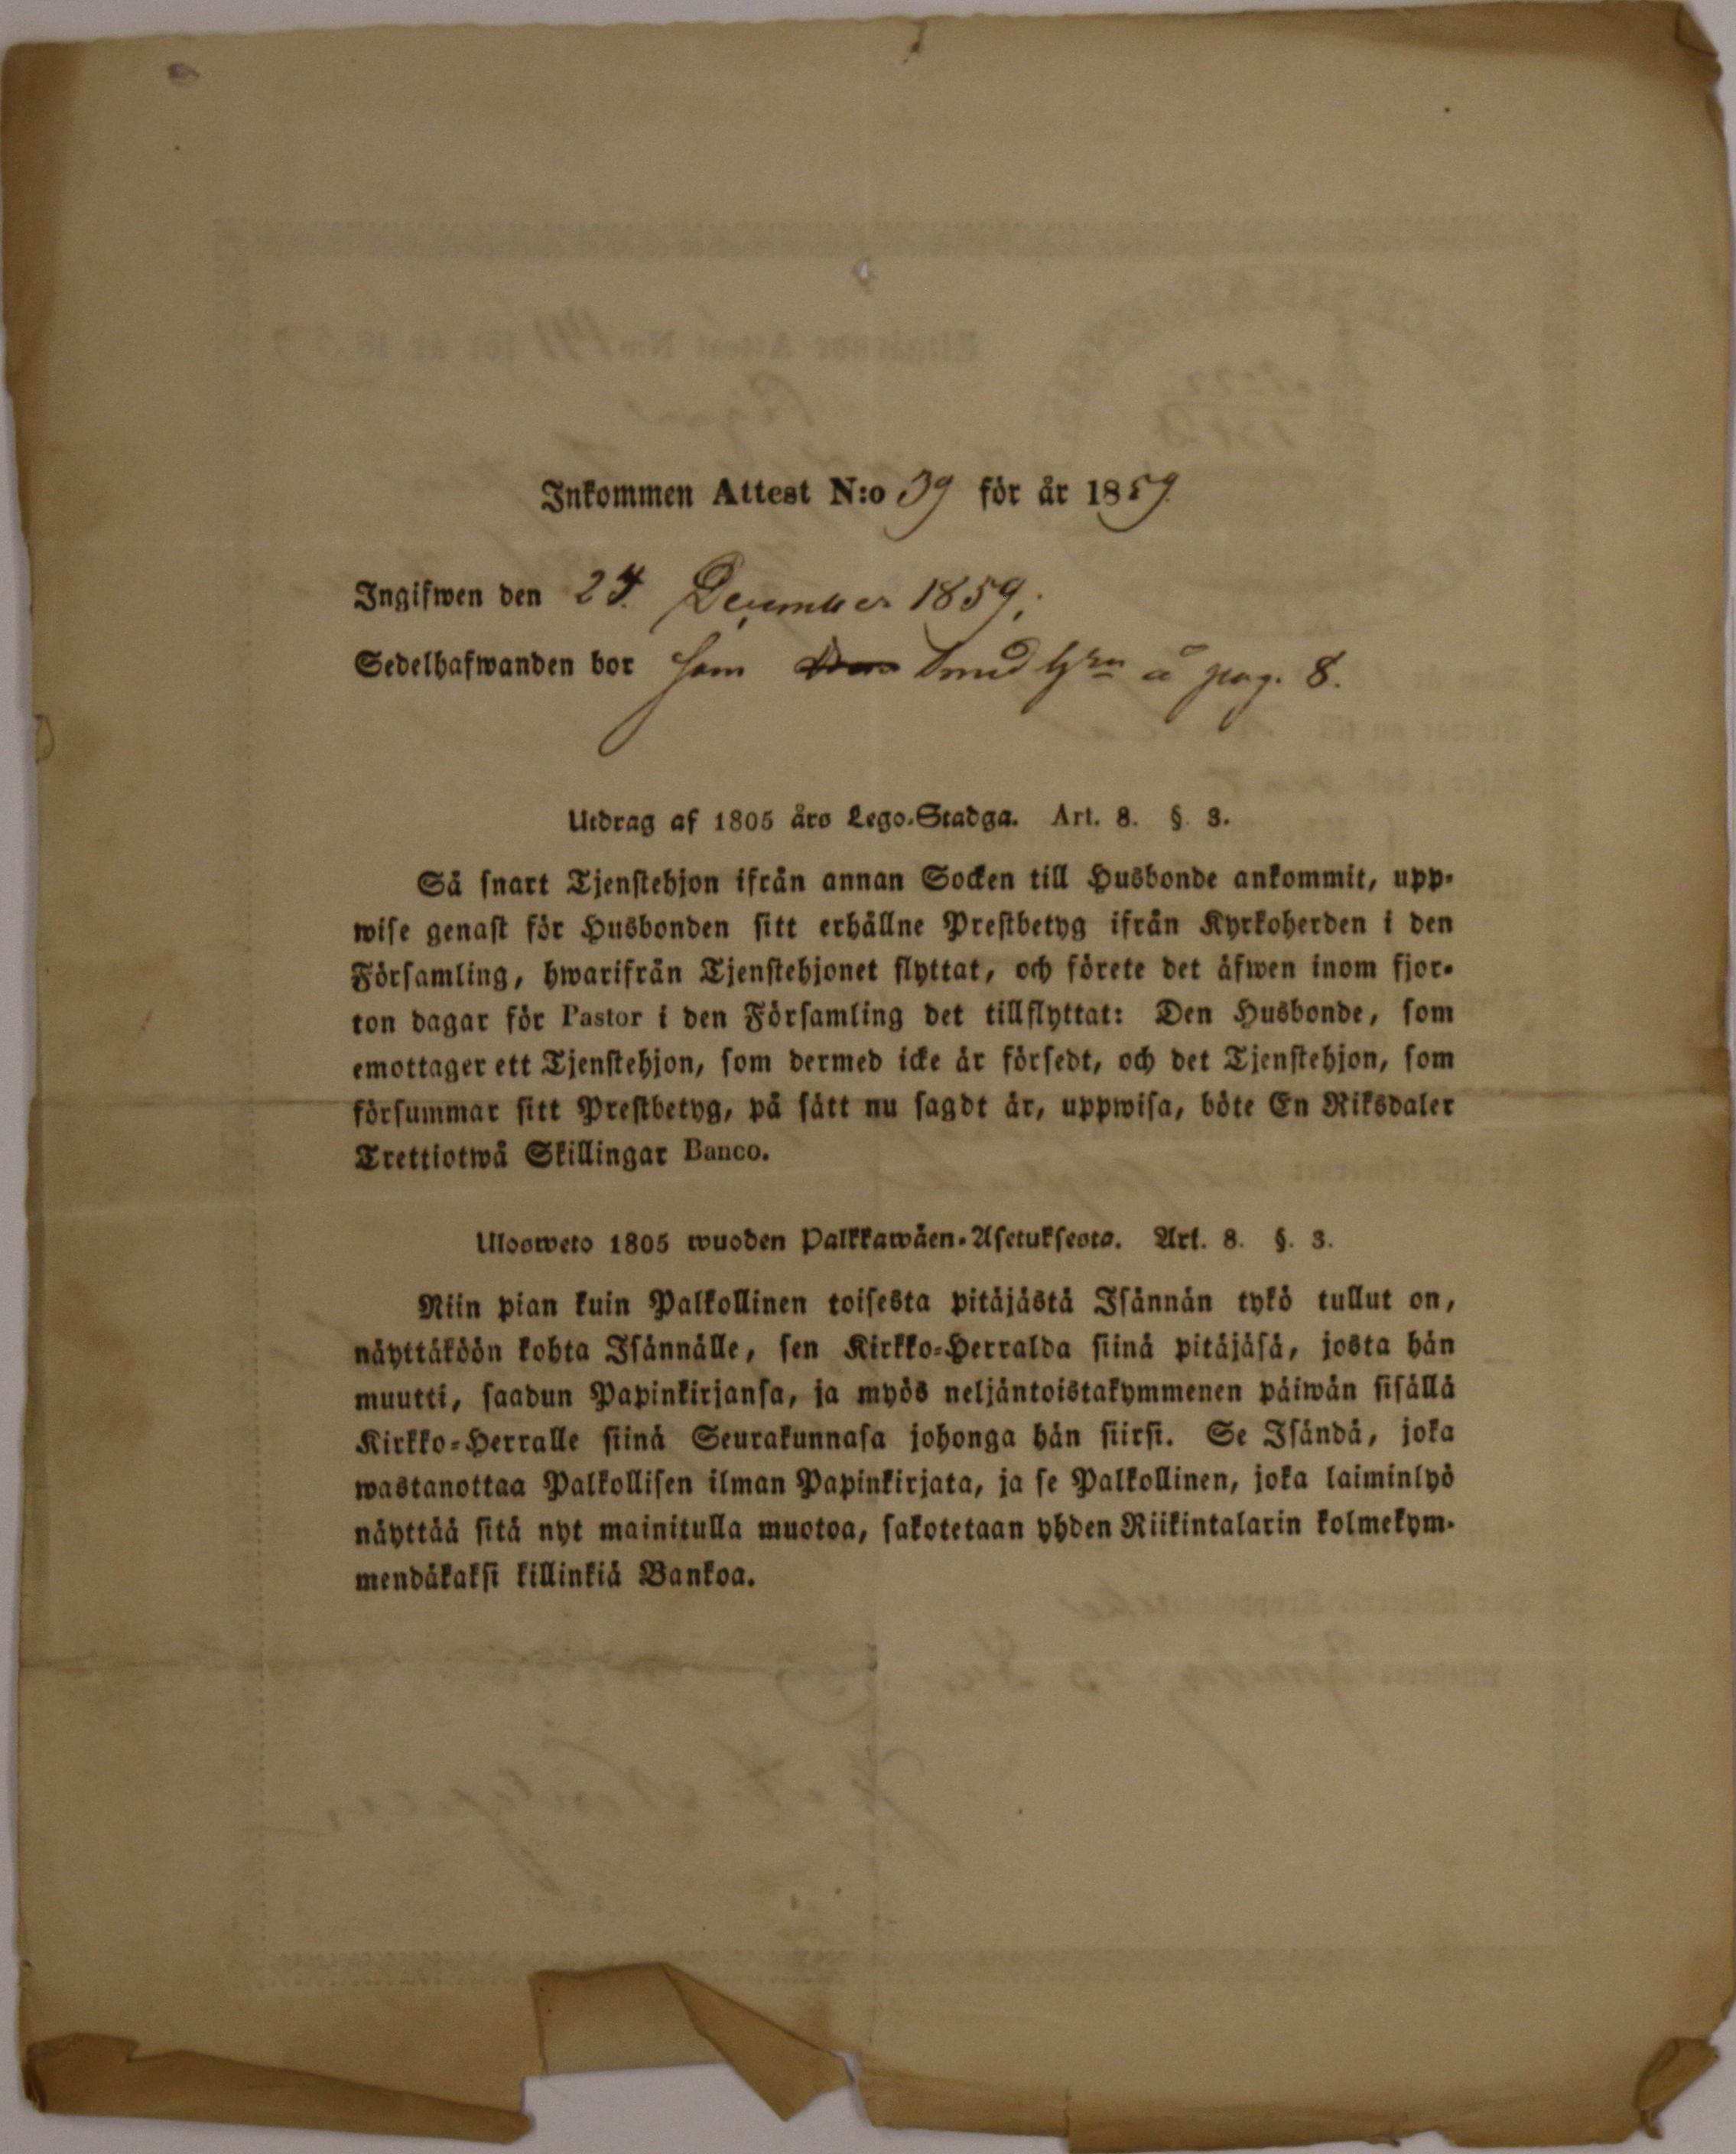 Inkommen Attest N:o 39 för år 1859.
Ingifwen den 24. December 1859;
Sedelhafwanden bor som å pag. 8.
Utdrag af 1805 års Lego-Stadga. Art. 8. § 3.
Så snart Tjenstehjon ifrån annan Socken till Husbonde ankommit, upp-
wise genast för Husbonden sitt erhållne Prestbetyg ifrån Kyrkoherden i den
Församling, hwarifrån Tjenstehjonet flyttat, och förete det äfwen inom fjor-
ton dagar för Pastor i den Församling det tillflyttat: Den Husbonde, som
emottager ett Tjenstehjon, som dermed icke är försedt, och det Tjenstehjon, som
försummar sitt Prestbetyg, på sätt nu sagdt är, uppwisa, böte En Riksdaler
Trettiotwå Skillingar Banco.
Ulosweto 1805 wuoden Palkkawäen-Asetuksesta. Art. 8. §. 3.
Niin pian kuin Palkollinen toisesta pitäjästä Isännän tykö tullut on,
näyttäköön kohta Isännälle, sen Kirkko-Herralda siinä pitäjäsä, josta hän
muutti, saadun Papinkirjansa, ja myös neljäntoistakymmenen päiwän sisällä
Kirkko-Herralle siinä Seurakunnasa johonga hän siirsi. Se Isändä, joka
wastanottaa Palkollisen ilman Papinkirjata, ja se Palkollinen, joka laiminlyö
näyttää sitä nyt mainitulla muotoa, sakotetaan yhden Riikintalarin kolmekym-
mendäkaksi killinkiä Bankoa.